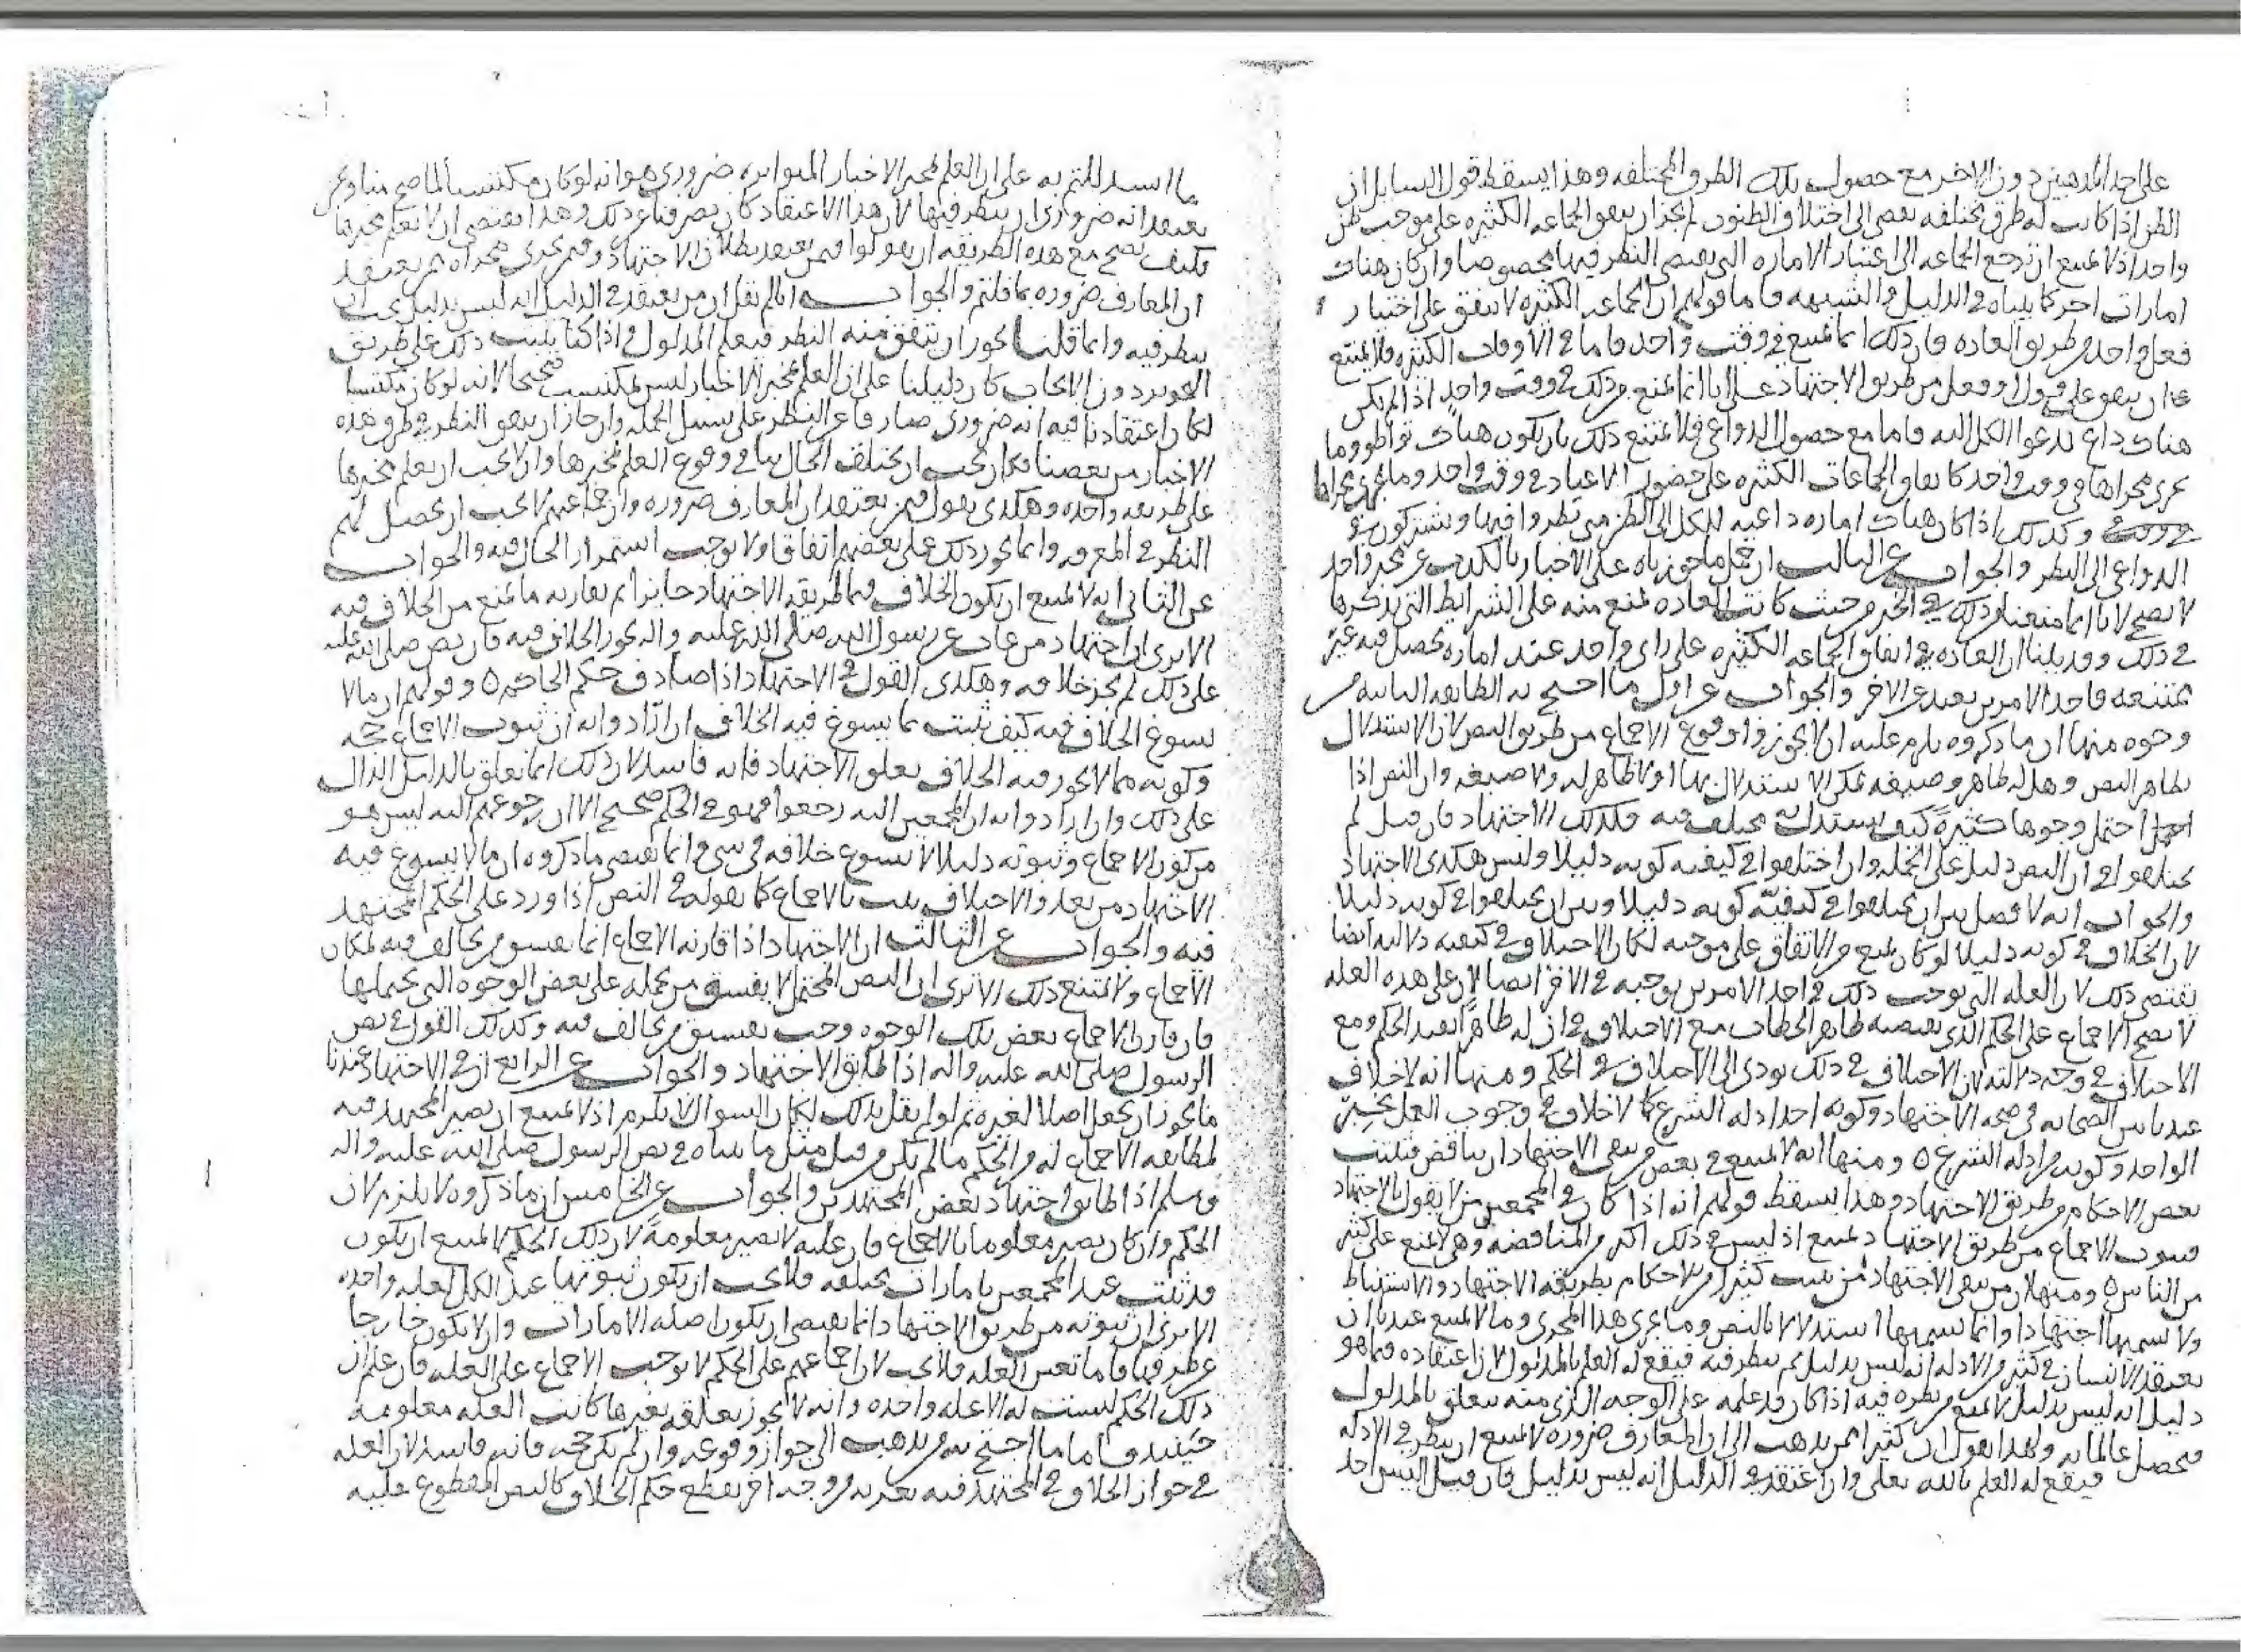 على احد المذهبين دون الاخر مع حصول تلك الطرق المختلفه وهذا يسقط قول السايل ان
الظن اذا كانت له طرق مختلفه يفضى الى اختلاف الظنون لم يجز ان يتفق الجماعه الكثيره على موجب ظن
واحد اذ لا يمتنع ان ترجع الجماعه الى اعتبار الاماره التى يقتضى النظر فيها مخصوصا وان كان هناك
امارات اخر كما بيناه في الدليل والشبهه فاما قولهم ان الجماعه الكثيره لا تتفق على اختيار
فعل واحد من طريق العاده فان ذلك انما يمتنع في وقت واحد فاما في الاوقات الكثيره فلا يمتنع
ان يتفق على قول او فعل من طريق الاجتهاد على انا انما نمنع من ذلك في وقت واحد اذا لم يكن
هناك داع يدعوا الكل اليه فاما مع حصول الدواعي فلا يمتنع ذلك بان يكون هناك تواطؤ وما
يجرى مجراها في وقت واحد كاتفاق الجماعات الكثيره على حضور الاعياد في وقت واحد وما يجرى مجراها
وكذلك اذا كان هناك اماره داعيه للكل الى الظن متى نظروا فيها ويشتركون في
الدواعى الى النظر والجواب عن الثالث ان حمل ما جوزناه على الاخبار بالكذب عن مخبر واحد
لا يصح لانا انما منعنا من ذلك في الخبر من حيث كانت العاده تمنع منه على الشرايط التى نذكرها
في ذلك وقد بينا ان العاده في اتفاق الجماعه الكثيره على راى واحد عند اماره تحصل فيه غير
ممتنعه فاحد الامرين بعيد عن الاخر والجواب عن اول ما احتج به الطايفه الثانيه من
وجوه منها ان ما ذكروه يلزم عليه ان لا يجوزوا وقوع الاجماع من طريق النص لان الاستدلال
بظاهر النص وهل له ظاهر وصيغه يمكن الاستدلال بها او لا ظاهر له ولا صيغه وان النص اذا
احتمل وجوها كثيرةً كيف يستدل به مختلف فيه فكذلك الاجتهاد فان قيل لم
يختلفوا في ان النص دليل على الجمله وان اختلفوا في كيفيه كونه دليلا وليس هكذى الاجتهاد
والجواب انه لا فصل بين ان يختلفوا في كيفيّه كونه دليلا وبين ان يختلفوا في كونه دليلا
لان الخلاف في كونه دليلا لو كان يمنع من الاتفاق على موجبه لكان الاختلاف في كيفيه دلالته ايضا
يقتضى ذلك لان العله التى توجب ذلك في احد الامرين توجبه في الاخر ايضا لان على هذه العله
لا يصح الاجماع على الحكم الذى يقتضيه ظاهر الخطاب مع الاختلاف في ان له ظاهراً يفيد الحكم ومع
الاختلاف في وجه دلالته لان الاختلاف في ذلك يودى الى الاختلاف في الحكم ومنها انه لا خلاف
عندنا بين الصحابه في صحه الاجتهاد وكونه احد ادله الشرع كما لا خلاف في وجوب العمل بخبر
الواحد وكونه من ادله الشرع ٥ ومنها انه لا يمتنع في بعض من ينفي الاجتهاد ان يناقض فيثبت
بعض الاحكام من طريق الاجتهاد وهذا يسقط قولهم انه اذا كان في المجمعين من لا يقول بالاجتهاد
فثبوت الاجماع من طريق الاجتهاد يمتنع اذ ليس في ذلك اكثر من المناقضه وهي لا تمتنع على كثير
من الناس ٥ ومنها ان من ينفى الاجتهاد من يثبت كثيرا من الاحكام بطريقه الاجتهاد والاستنباط
ولا يسميها اجتهادا وانما يسميها استدلالا بالنص وما يجرى هذا المجرى وما لا يمتنع عندنا ان
يعتقد الانسان في كثير من الادله انه ليس بدليل ثم ينظر فيه فيقع له العلم بالمدلول لان اعتقاده فيما هو
دليل انه ليس بدليل لا يمنع من نظره فيه اذا كان قد علمه على الوجه الذى منه يتعلق بالمدلول
فيحصل عالما به ولهذا نقول ان كثيرا ممن يذهب الى ان المعارف ضروره لا يمتنع ان ينظر في الادله
فيقع له العلم بالله تعلى وان اعتقد في الدليل انه ليس بدليل فان قيل اليس احد
ما استدللتم به على ان العلم بمخبر الاخبار المتواتره ضرورى هو انه لو كان مكتسبا لما صح منا ومن
يعتقد انه ضرورى ان ينظر فيها لان هذا الاعتقاد كان يصرفنا عن ذلك وهذا يقتضى ان لا نعلم مخبرها
فكيف يصح مع هذه الطريقه ان يقولوا فيمن يعتقد بطلان الاجتهاد ومن يجرى مجراه ممن يعتقد
ان المعارف ضروره بما قلتم والجواب انا لم نقل ان من يعتقد في الدليل انه ليس بدليل يجب ان
ينظر فيه وانما قلنا يجوز ان يتفق منه النظر فيعلم المدلول واذا كنا بنينا ذلك على طريق
التجويز دون الايجاب كان دليلنا على ان العلم بمخبر الاخبار ليس بمكتسب صحيحا لانه لو كان مكتسبا
لكان اعتقادنا فيه انه ضرورى صارفا عن النظر على سبيل الجمله وان جاز ان يتفق النظر في طرق هذه
الاخبار من بعضنا فكان يجب ان يختلف الحال بنا في وقوع العلم بمخبرها وان لا يجب ان نعلم مخبرها
على طريقه واحده وهكذى نقول فيمن يعتقد ان المعارف ضروره وان جماعتهم لا يجب ان يحصل لهم
النظر في المعرفه وانما يجوز ذلك على بعضهم اتفاقا ولا نوجب استمرار الحال فيه والجواب
عن الثانى انه لا يمتنع ان يكون الخلاف فيما طريقه الاجتهاد جايزا ثم يقارنه ما يمنع من الخلاف فيه
الا ترى ان اجتهاد من غاب عن رسول الله صلى الله عليه واله يجوز الخلاف فيه فان نص صلى الله عليه
على ذلك لم يجز خلافه وهكذى القول في الاجتهاد اذا صادف حكم الحاضر ٥ وقولهم ان ما لا
يسوغ الخلاف فيه كيف يثبت بما يسوغ فيه الخلاف ان ارادوا به ان ثبوت الاجماع حجه
وكونه مما لا يجوز فيه الخلاف يتعلق بالاجتهاد فانه فاسد لان ذلك انما يتعلق بالدليل الدال
على ذلك وان ارادوا به ان المجمعين اليه رجعوا فهو في الحكم صحيح الا ان رجوعهم اليه ليس هو
من كون الاجماع وثبوته دليلا لا يسوغ خلافه في شي وانما يقتضى ما ذكروه ان ما لا يسوغ فيه
الاجتهاد من بعد والاختلاف يثبت بالاجماع كما نقوله في النص اذا ورد على الحكم المجتهد
فيه والجواب عن الثالث ان الاجتهاد اذا قارنه الاجماع انما يفسق من يخالف فيه لمكان
الاجماع ولا يمتنع ذلك الا ترى ان النص المحتمل لا يفسق من يحمله على بعض الوجوه التى يحتملها
فان قارن الاجماع بعض تلك الوجوه وجب تفسيق من يخالف فيه وكذلك القول في نص
الرسول صلى الله عليه واله اذا طابق الاجتهاد والجواب عن الرابع ان في الاجتهاد عندنا
ما يجوز ان يجعل اصلا لغيره ثم لو لم نقل بذلك لكان السوال لا يلزم اذ لا يمتنع ان يصير المجتهد فيه
لمطابقه الاجماع له من الحكم ما لم يكن من قبل مثل ما بيناه في نص الرسول صلى الله عليه واله
وسلم اذا طابق اجتهاد بعض المجتهدين والجواب عن الخامس ان ما ذكروه لا يلزم لان
الحكم وان كان يصير معلوما بالاجماع فان علته لا تصير معلومةً لان ذلك الحكم لا يمتنع ان يكون
قد ثبت عند المجمعين بامارات مختلفه فلا يجب ان يكون ثبوتها عند الكل لعله واحده
الا ترى ان ثبوته من طريق الاجتهاد انما يقتضى ان يكون اصله الامارات وان لا يكون خارجا
عن طرقها فاما تعين العله فلا يجب لان اجماعهم على الحكم لا يوجب الاجماع على العله فان علم ان
ذلك الحكم ليست له الا عله واحده وانه لا يجوز تعلقه بغيرها كانت العله معلومه
حينيد فاما ما احتج به من يذهب الى جواز وقوعه وان لم يكن حجه فانه فاسد لان العله
في جواز الخلاف في المجتهد فيه تعريه من وجه اخر يقطع حكم الخلاف كالنص المقطوع عليه